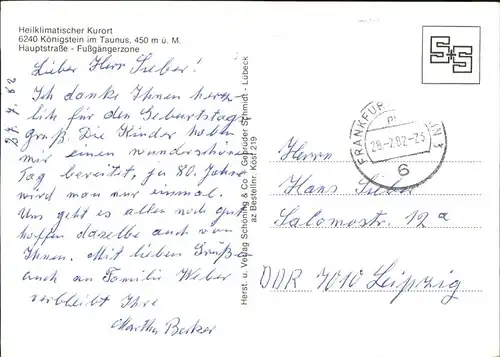 Heilklimatischer Kurort
6240 Königstein im Taunus, 450 m ü. M.
Hauptstraße - Fußgängerzone
27.7.82
Lieber Herr Sieber!
Ich danke Ihnen herz-
lich für den Geburtstags-
gruß. Die Kinder haben
mir einen wunderschönen
Tag bereitet, ja 80 Jahre
wird man nur einmal.
Uns geht es allen noch gut
hoffen dasselbe auch von
Ihnen. Mit lieben Grüßen
auch an Familie Weber
verbleibt Ihre
Martha Becker
Herst. u. Verlag Schöning & Co + Gebrüder Schmidt - Lübeck
az Bestellnr. Köst 219
S+S
FRANKFURT
28-7.82-23
6
Herrn
Hans Sieber
Salomonstr. 12 a
DDR 7010 Leipzig